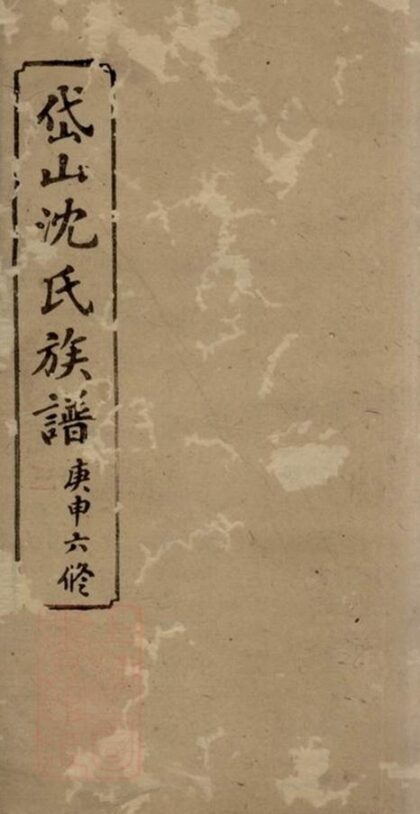 岱山沈氏族譜
庚申六修